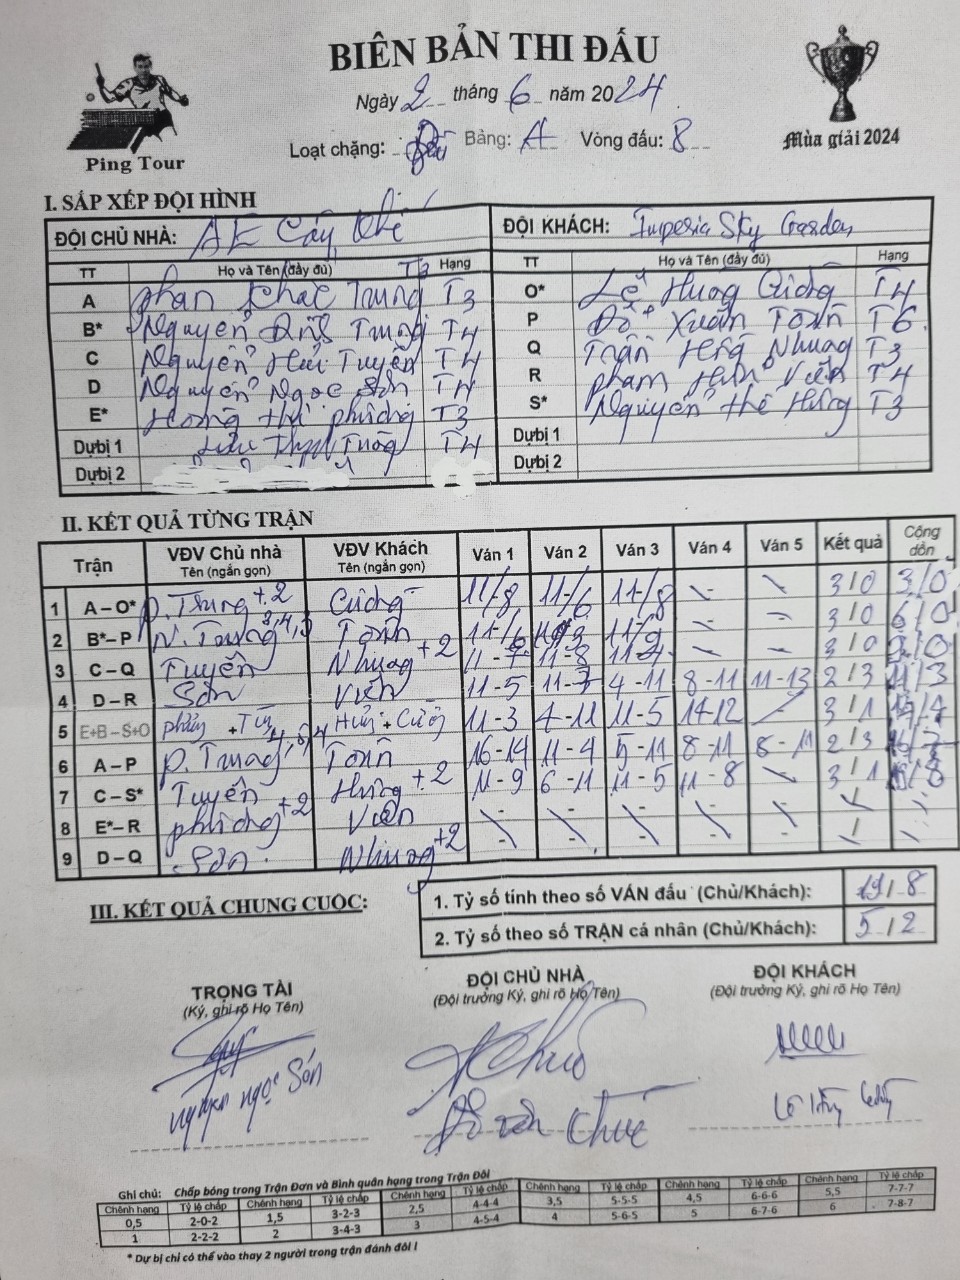 BIÊN BẢN THI ĐẤU
Ngày 2 tháng 6 năm 2024
Ping Tour
Loạt chặng: Bảng: A Vòng đấu: 8
Mùa giải 2024
I. SẮP XẾP ĐỘI HÌNH
ĐỘI CHỦ NHÀ: AE Cây Khế ĐỘI KHÁCH: Imperia Sky Garden
TT Họ và Tên (đầy đủ) Hạng TT Họ và Tên (đầy đủ) Hạng
A Phan Khắc Trung T3 O* Lê Cường T4
B* Nguyễn Trung T4 P Đỗ Xuân Toàn T6
C Nguyễn Hữu Tuyên T4 Q Trần Nhung T3
D Nguyễn Ngọc Sơn T4 R Phạm Viên T4
E* Hoàng Thị Phương T3 S* Nguyễn Thế Hưng T3
Dự bị 1 T4 Dự bị 1
Dự bị 2 Dự bị 2
II. KẾT QUẢ TỪNG TRẬN
Trận VĐV Chủ nhà Tên (ngắn gọn) VĐV Khách Tên (ngắn gọn) Ván 1 Ván 2 Ván 3 Ván 4 Ván 5 Kết quả Cộng dồn
1 A – O* P. Trung +2 Cường 11/8 11/6 11/8 3/0 3/0
2 B* – P N. Trung 3,4,3 Toàn 11/6 11/9 3/0 6/0
3 C – Q Tuyên Nhung +2 11-8 3/0 9/0
4 D – R Sơn Viên 11-5 11-7 4-11 8-11 11-13 2/3 11/3
5 E+B – S+O + Hưng + Cường 11-3 4-11 11-5 14-12 3/1 14/4
6 A – P P. Trung Toàn 16-14 11-4 5-11 8-11 8-11 2/3 16/7
7 C – S* Tuyên Hưng +2 11-9 6-11 11-5 11-8 3/1 19/8
8 E* – R Phương +2 Viên
9 D – Q Sơn Nhung +2
III. KẾT QUẢ CHUNG CUỘC:
1. Tỷ số tính theo số VÁN đấu (Chủ/Khách): 19/8
2. Tỷ số theo số TRẬN cá nhân (Chủ/Khách): 5/2
TRỌNG TÀI ĐỘI CHỦ NHÀ ĐỘI KHÁCH
(Ký, ghi rõ Họ Tên) (Đội trưởng Ký, ghi rõ Họ Tên) (Đội trưởng Ký, ghi rõ Họ Tên)
Nguyễn Ngọc Sơn
Ghi chú: Chấp bóng trong Trận Đơn và Bình quân hạng trong Trận Đôi
Chênh hạng Tỷ lệ chấp Chênh hạng Tỷ lệ chấp Chênh hạng Tỷ lệ chấp Chênh hạng Tỷ lệ chấp Chênh hạng Tỷ lệ chấp Chênh hạng Tỷ lệ chấp
0,5 2-0-2 1,5 3-2-3 2,5 4-4-4 3,5 5-5-5 4,5 6-6-6 5,5 7-7-7
1 2-2-2 2 3-4-3 3 4-5-4 4 5-6-5 5 6-7-6 6 7-8-7
* Dự bị chỉ có thể vào thay 2 người trong trận đánh đôi !